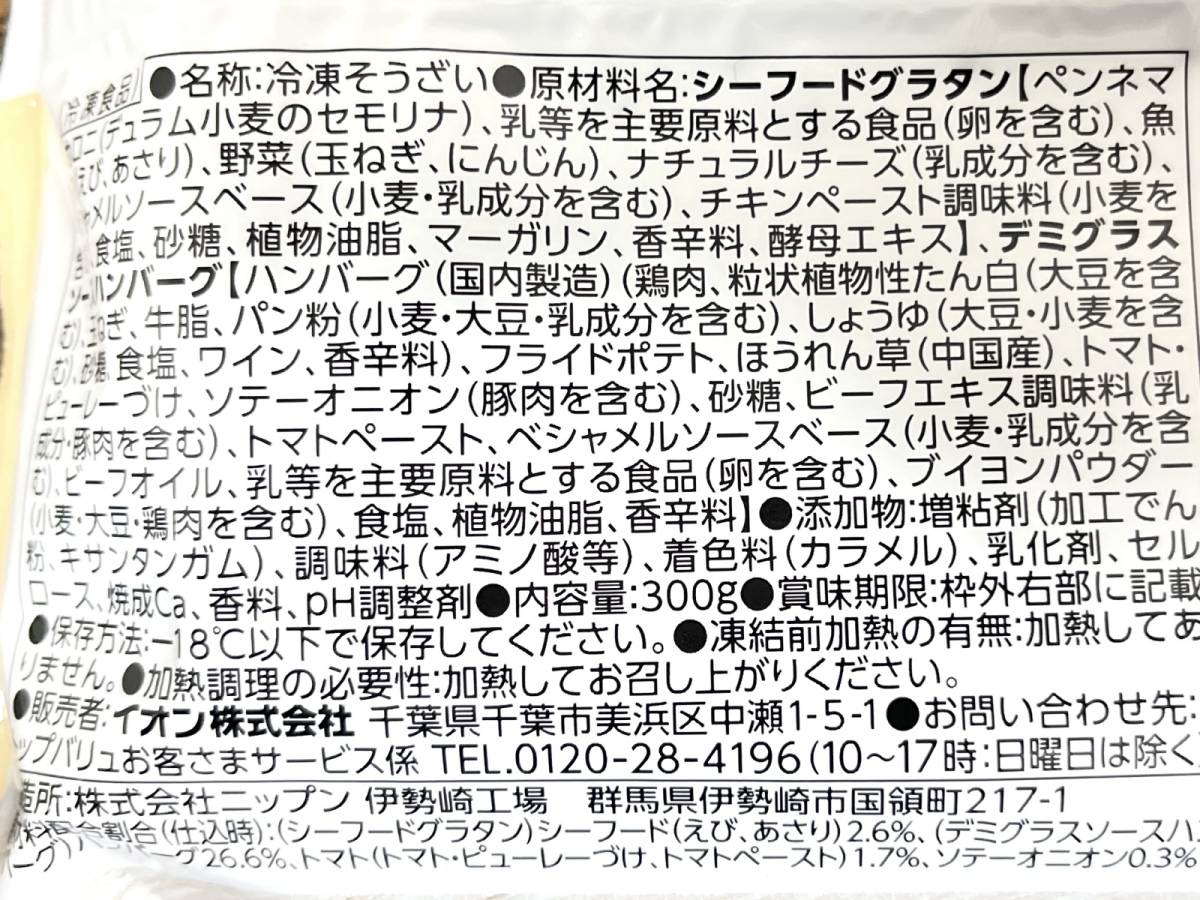 冷凍食品
●名称:冷凍そうざい●原材料名:シーフードグラタン【ペンネマ
ロニ(デュラム小麦のセモリナ)、乳等を主要原料とする食品(卵を含む)、魚
えび、あさり)、野菜(玉ねぎ、にんじん)、ナチュラルチーズ(乳成分を含む)、
シャメルソースベース(小麦・乳成分を含む)、チキンペースト調味料(小麦を
含む)、食塩、砂糖、植物油脂、マーガリン、香辛料、酵母エキス】、デミグラス
ソースハンバーグ【ハンバーグ(国内製造)(鶏肉、粒状植物性たん白(大豆を含
む)、玉ねぎ、牛脂、パン粉(小麦・大豆・乳成分を含む)、しょうゆ(大豆・小麦を含
む)、砂糖、食塩、ワイン、香辛料)、フライドポテト、ほうれん草(中国産)、トマト・
ピューレーづけ、ソテーオニオン(豚肉を含む)、砂糖、ビーフエキス調味料(乳
成分・豚肉を含む)、トマトペースト、ベシャメルソースベース(小麦・乳成分を含
む)、ビーフオイル、乳等を主要原料とする食品(卵を含む)、ブイヨンパウダー
(小麦・大豆・鶏肉を含む)、食塩、植物油脂、香辛料】●添加物:増粘剤(加工でん
粉、キサンタンガム)、調味料(アミノ酸等)、着色料(カラメル)、乳化剤、セル
ロース、焼成Ca、香料、pH調整剤●内容量:300g●賞味期限:枠外右部に記載
●保存方法:−18℃以下で保存してください。●凍結前加熱の有無:加熱してあ
りません。●加熱調理の必要性:加熱してお召し上がりください。
●販売者:イオン株式会社 千葉県千葉市美浜区中瀬1-5-1●お問い合わせ先:
ップバリュお客さまサービス係 TEL.0120-28-4196(10〜17時:日曜日は除く)
造所:株式会社ニップン 伊勢崎工場 群馬県伊勢崎市国領町217-1
材料配合割合(仕込時):(シーフードグラタン)シーフード(えび、あさり)2.6%、(デミグラスソースハ
バーグ)ハンバーグ26.6%、トマト(トマト・ピューレーづけ、トマトペースト)1.7%、ソテーオニオン0.3%